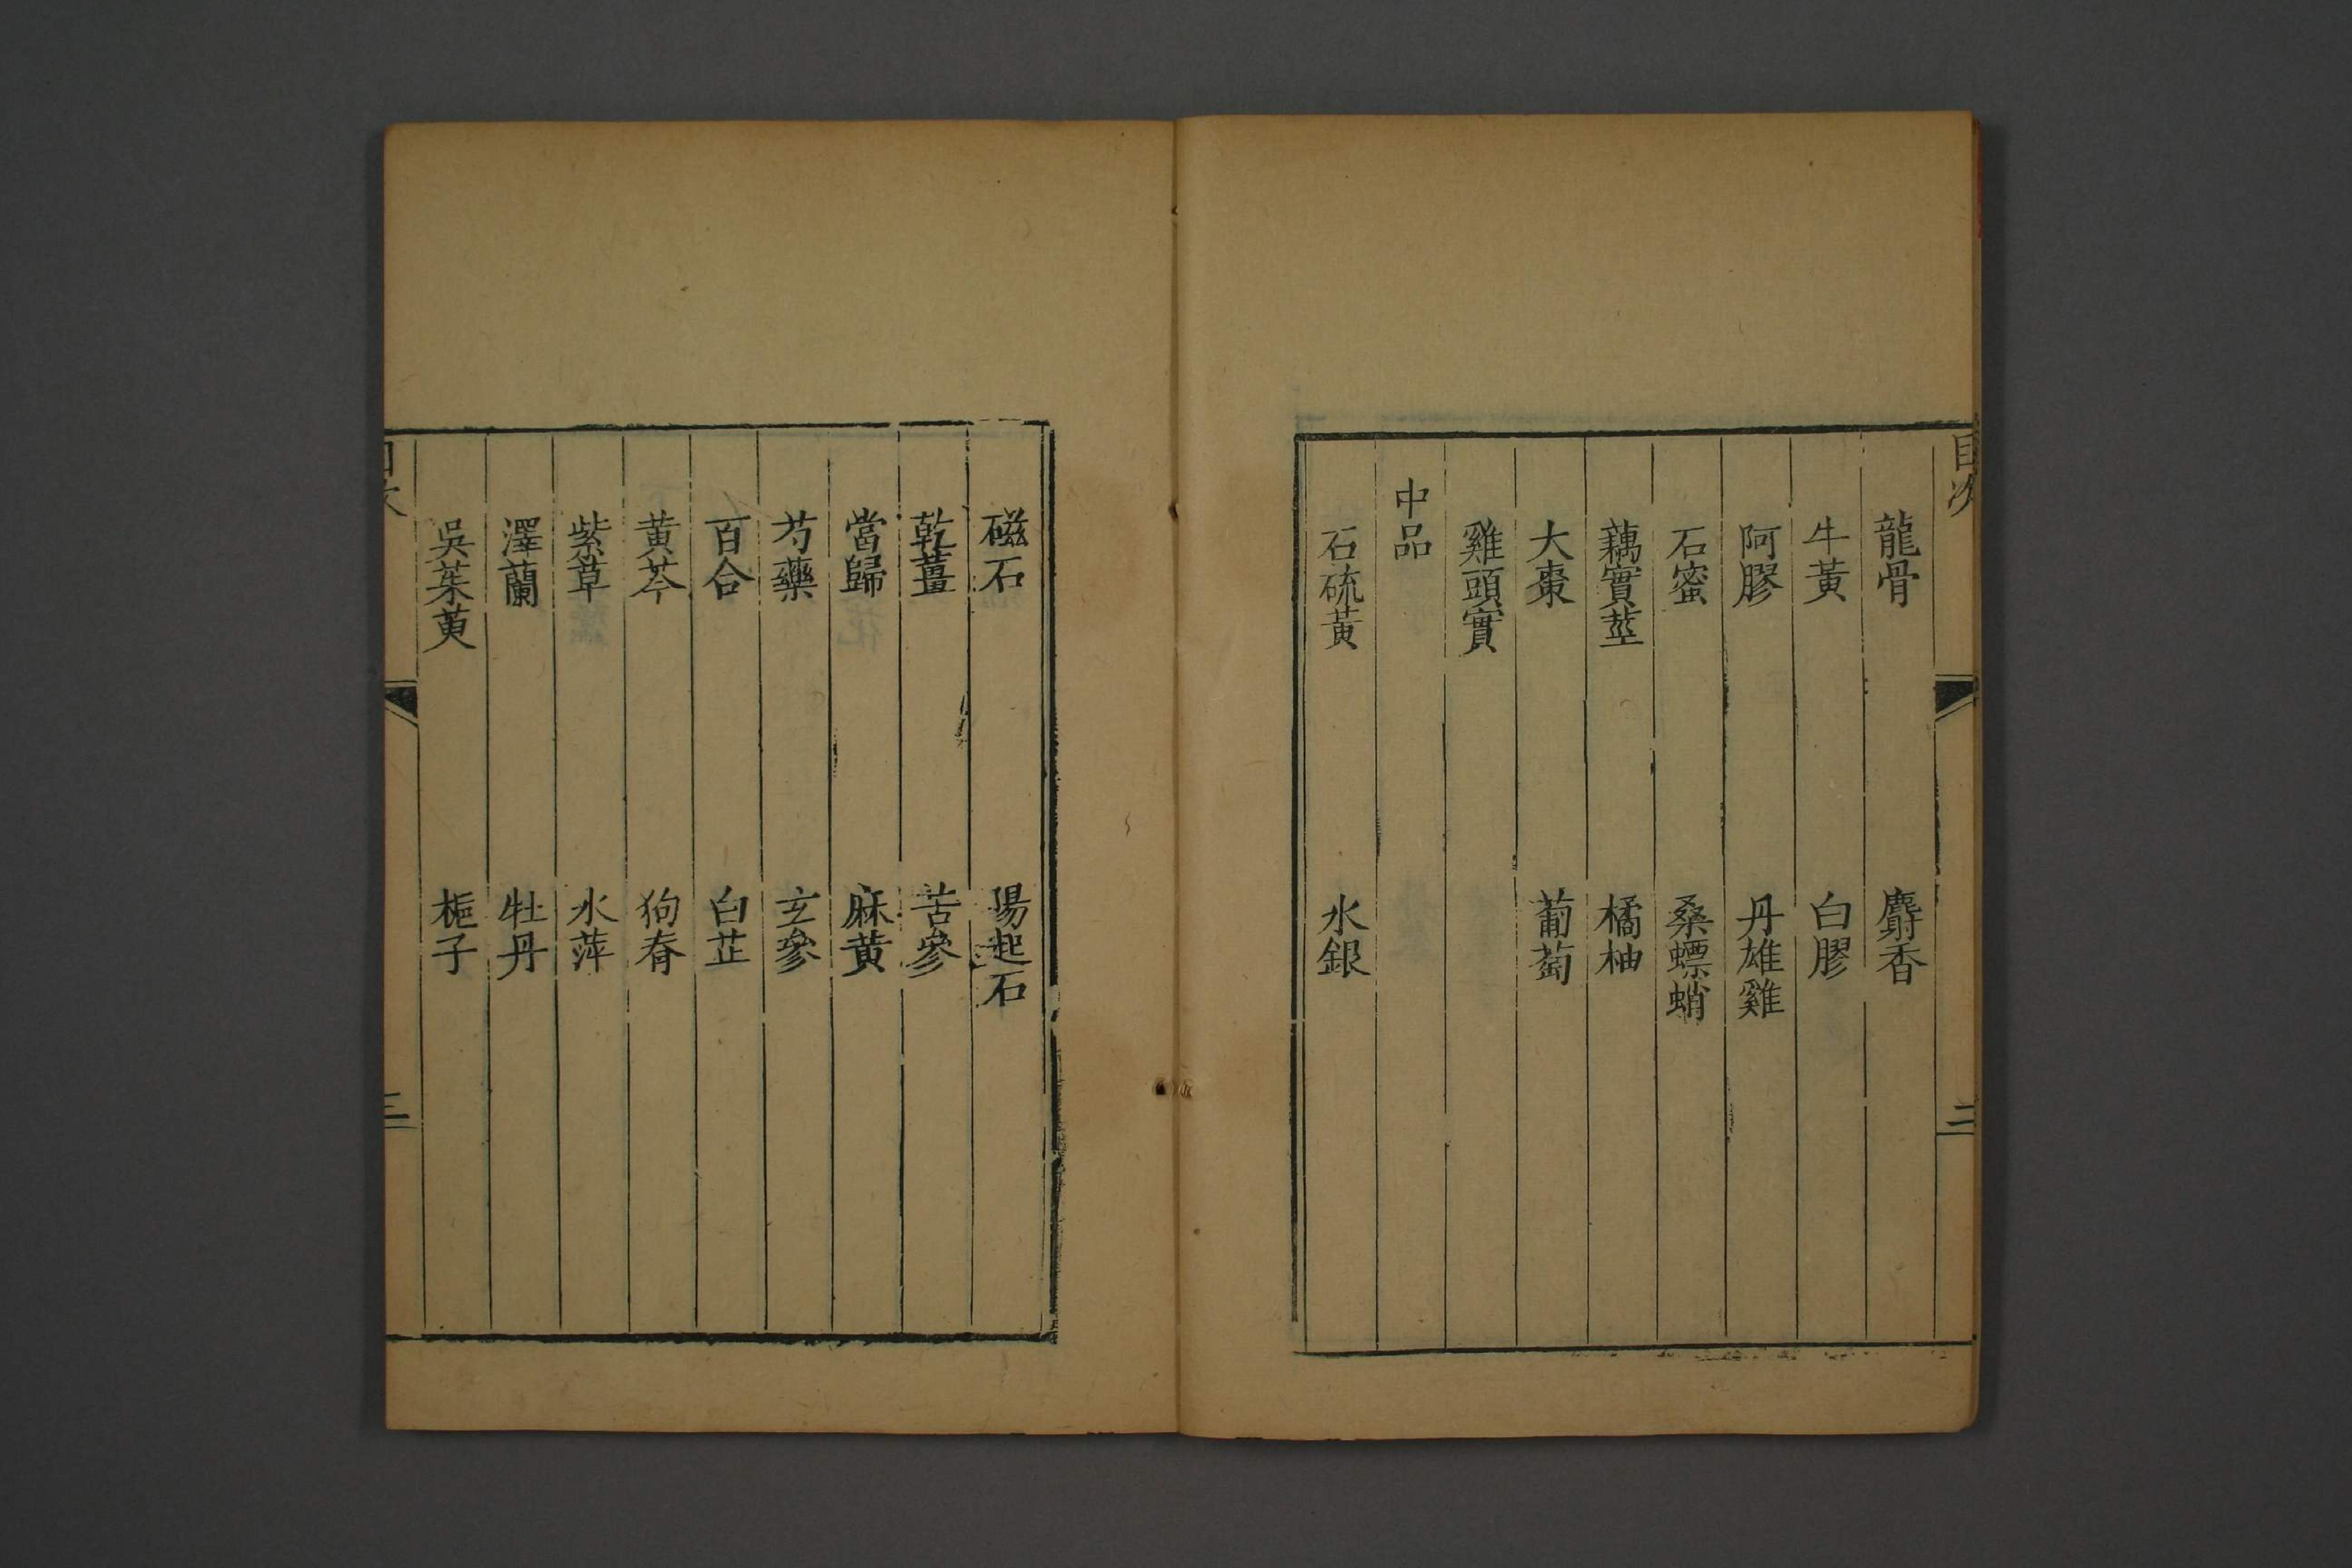 目次
三
龍骨 麝香
牛黃 白膠
阿膠 丹雄雞
石蜜 桑螵蛸
藕實莖 橘柚
大棗 葡萄
雞頭實
中品
石硫黃 水銀
磁石 陽起石
乾薑 苦參
當歸 麻黄
芍藥 玄參
百合 白芷
黄芩 狗脊
紫草 水萍
澤蘭 牡丹
吳茱萸 梔子
三